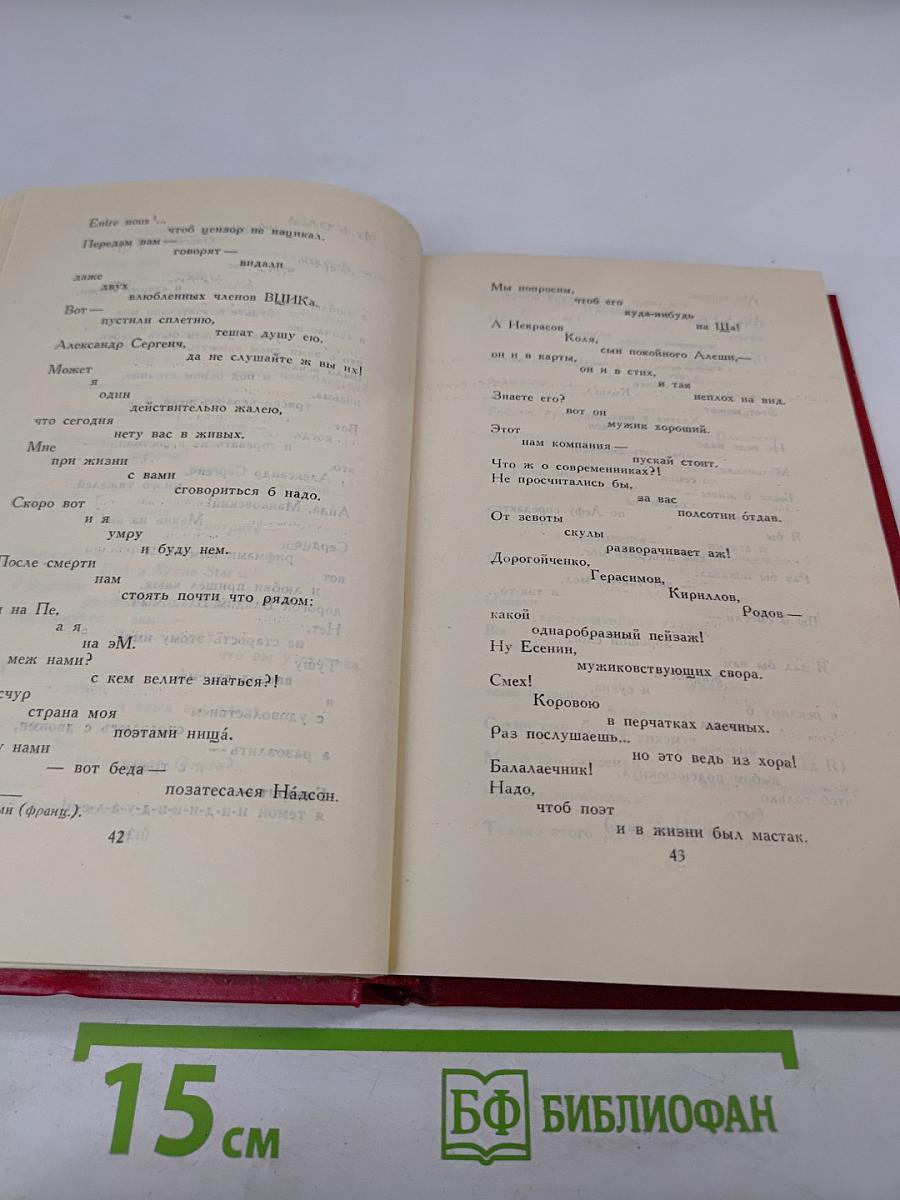 Entre nous ¹...
чтоб цензор не нацикал.
Передам вам —
говорят —
видали
даже
двух
влюбленных членов ВЦИКа.
Вот —
пустили сплетню,
тешат душу ею.
Александр Сергеич,
да не слушайте ж вы их!
Может
я
один
действительно жалею,
что сегодня
нету вас в живых.
Мне
при жизни
с вами
сговориться б надо.
Скоро вот
и я
умру
и буду нем.
После смерти
нам
стоять почти что рядом:
на Пе,
а я
на эМ.
меж нами?
с кем велите знаться?!
счур
страна моя
поэтами нища́.
у нами
— вот беда —
позатесался На́дсон.
ми (франц.).
42
Мы попросим,
чтоб его
куда-нибудь
на Ща!
А Некрасов
Коля,
сын покойного Алеши,—
он и в карты,
он и в стих,
и так
неплох на вид.
Знаете его?
вот он
мужик хороший.
Этот
нам компания —
пускай стоит.
Что ж о современниках?!
Не просчитались бы,
за вас
полсотни о́тдав.
От зевоты
скулы
разворачивает аж!
Дорогойченко,
Герасимов,
Кириллов,
Родов —
какой
однаробразный пейзаж!
Ну Есенин,
мужиковствующих свора.
Смех!
Коровою
в перчатках лаечных.
Раз послушаешь...
но это ведь из хора!
Балалаечник!
Надо,
чтоб поэт
и в жизни был мастак.
43
15 см
БФ БИБЛИОФАН